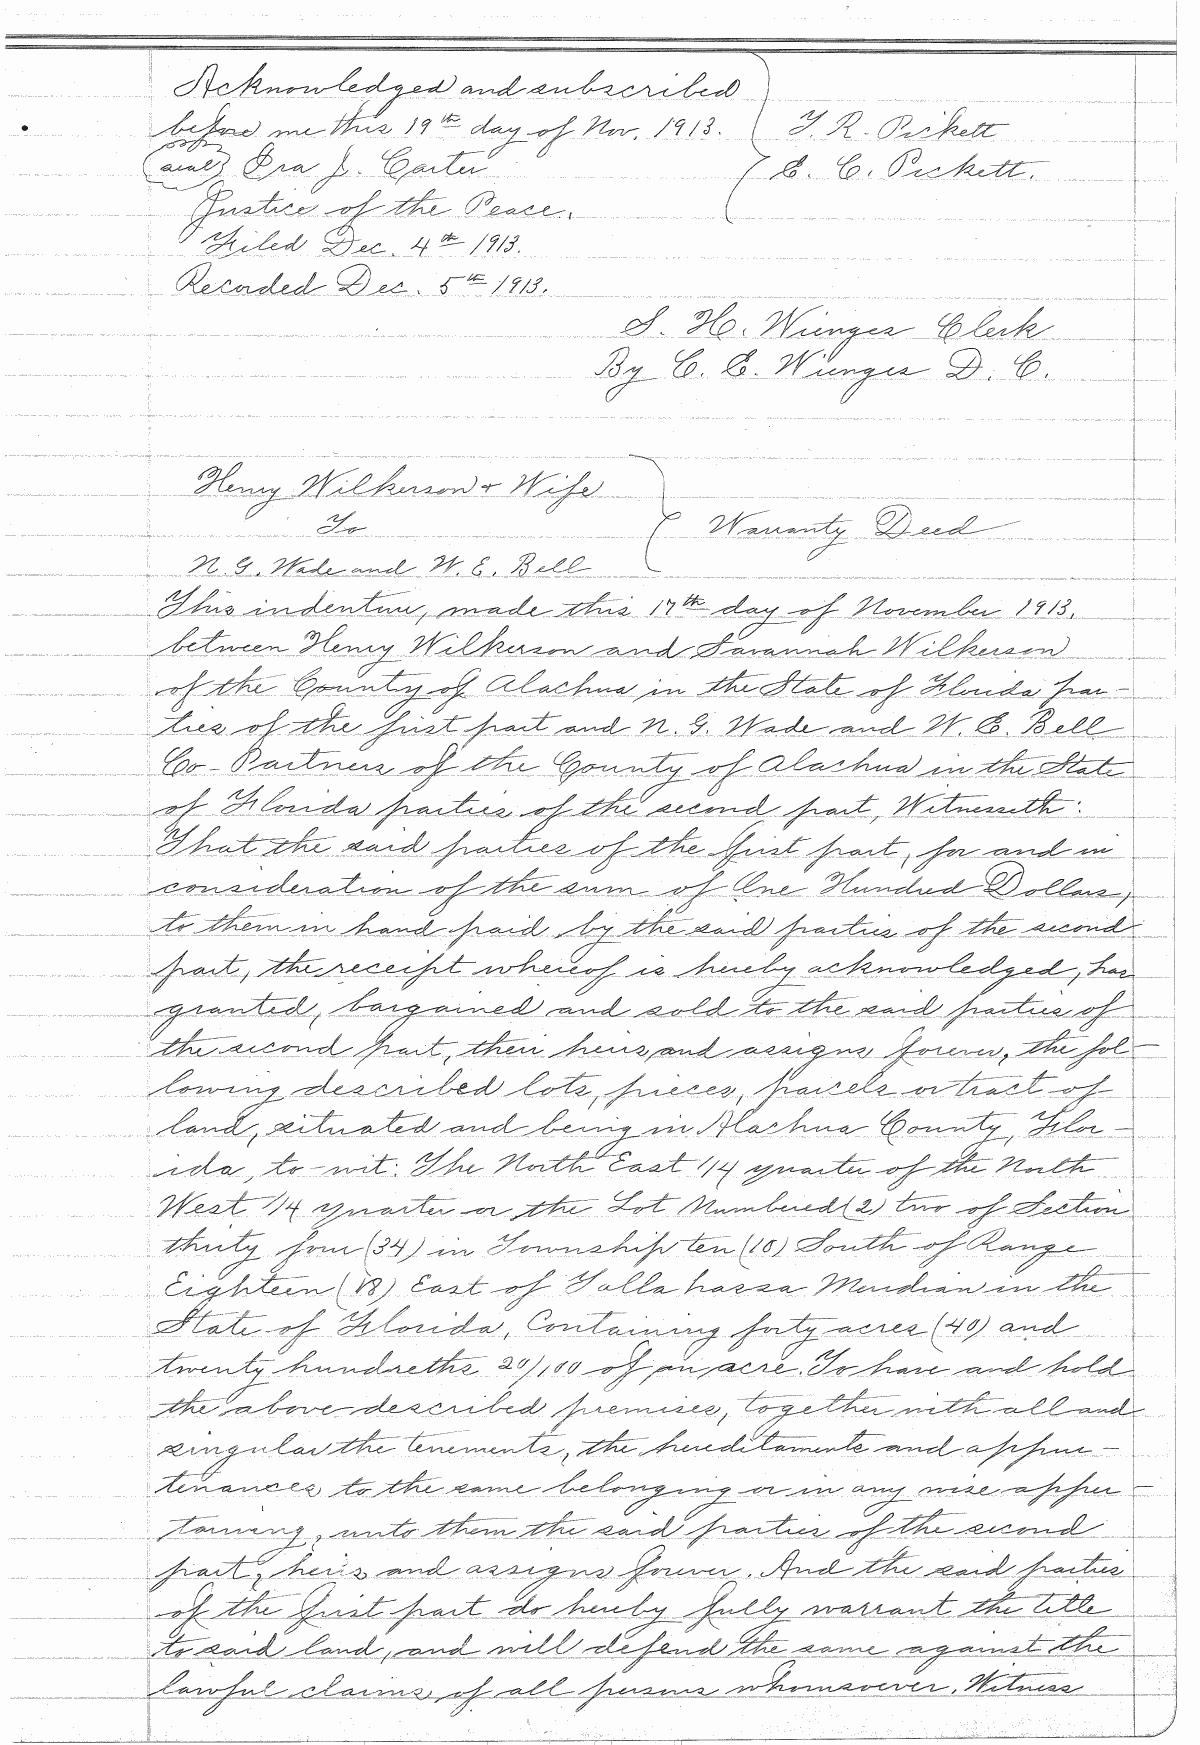 Acknowledged and subscribed
before me this 19th day of Nov. 1913. T. R. Pickett
(seal) Ira J. Carter E. C. Pickett.
Justice of the Peace.
Filed Dec. 4th 1913.
Recorded Dec. 5th 1913.
S. H. Wienges Clerk
By C. E. Wienges D. C.
Henry Wilkerson & Wife
To Warranty Deed
N. G. Wade and W. E. Bell
This indenture, made this 17th day of November 1913.
between Henry Wilkerson and Savannah Wilkerson
of the County of Alachua in the State of Florida par-
ties of the first part and N. G. Wade and W. E. Bell
Co-Partners of the County of Alachua in the State
of Florida parties of the second part, Witnesseth:
That the said parties of the first part, for and in
consideration of the sum of One Hundred Dollars,
to them in hand paid by the said parties of the second
part, the receipt whereof is hereby acknowledged, has
granted, bargained and sold to the said parties of
the second part, their heirs and assigns forever, the fol-
lowing described lots, pieces, parcels or tract of
land, situated and being in Alachua County, Flor-
ida, to-wit: The North East 1/4 quarter of the North
West 1/4 quarter or the Lot Numbered (2) two of Section
thirty four (34) in Township ten (10) South of Range
Eighteen (18) East of Tallahassa Meridian in the
State of Florida, Containing forty acres (40) and
twenty hundreths 20/100 of an acre. To have and hold
the above described premises, together with all and
singular the tenements, the hereditaments and appur-
tenances to the same belonging or in any wise apper-
taining, unto them the said parties of the second
part, heirs and assigns forever. And the said parties
of the first part do hereby fully warrant the title
to said land, and will defend the same against the
lawful claims of all persons whomsoever. Witness